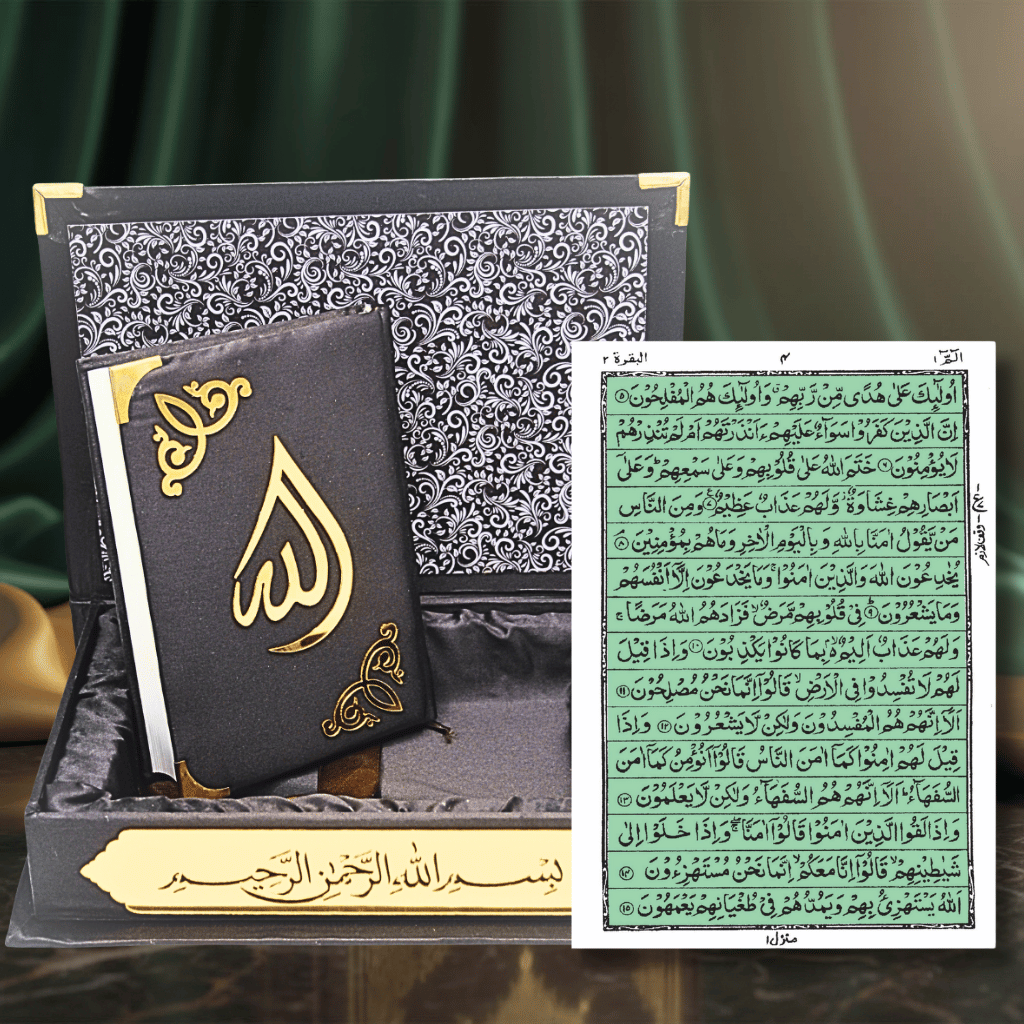 الله
بِسْمِ اللهِ الرَّحْمٰنِ الرَّحِيْمِ
الٓمّٓ ١
۴
البقرة ٢
اُولٰٓئِكَ عَلٰى هُدًى مِّنْ رَّبِّهِمْ ۙ وَاُولٰٓئِكَ هُمُ الْمُفْلِحُوْنَ ۵
اِنَّ الَّذِيْنَ كَفَرُوْا سَوَآءٌ عَلَيْهِمْ ءَاَنْذَرْتَهُمْ اَمْ لَمْ تُنْذِرْهُمْ
لَا يُؤْمِنُوْنَ ۶ خَتَمَ اللهُ عَلٰى قُلُوْبِهِمْ وَعَلٰى سَمْعِهِمْ ؕ وَعَلٰٓى
اَبْصَارِهِمْ غِشَاوَةٌ ؗ وَّلَهُمْ عَذَابٌ عَظِيْمٌ ۷ وَمِنَ النَّاسِ
مَنْ يَّقُوْلُ اٰمَنَّا بِاللهِ وَبِالْيَوْمِ الْاٰخِرِ وَمَا هُمْ بِمُؤْمِنِيْنَ ۸
يُخٰدِعُوْنَ اللهَ وَالَّذِيْنَ اٰمَنُوْا ۚ وَمَا يَخْدَعُوْنَ اِلَّآ اَنْفُسَهُمْ
وَمَا يَشْعُرُوْنَ ۹ فِيْ قُلُوْبِهِمْ مَّرَضٌ ۙ فَزَادَهُمُ اللهُ مَرَضًا ۚ
وَلَهُمْ عَذَابٌ اَلِيْمٌ ۢ ۙ بِمَا كَانُوْا يَكْذِبُوْنَ ۱۰ وَاِذَا قِيْلَ
لَهُمْ لَا تُفْسِدُوْا فِي الْاَرْضِ ۙ قَالُوْٓا اِنَّمَا نَحْنُ مُصْلِحُوْنَ ۱۱
اَلَآ اِنَّهُمْ هُمُ الْمُفْسِدُوْنَ وَلٰكِنْ لَّا يَشْعُرُوْنَ ۱۲ وَاِذَا
قِيْلَ لَهُمْ اٰمِنُوْا كَمَآ اٰمَنَ النَّاسُ قَالُوْٓا اَنُؤْمِنُ كَمَآ اٰمَنَ
السُّفَهَآءُ ؕ اَلَآ اِنَّهُمْ هُمُ السُّفَهَآءُ وَلٰكِنْ لَّا يَعْلَمُوْنَ ۱۳
وَاِذَا لَقُوا الَّذِيْنَ اٰمَنُوْا قَالُوْٓا اٰمَنَّا ۖۚ وَاِذَا خَلَوْا اِلٰى
شَيٰطِيْنِهِمْ ۙ قَالُوْٓا اِنَّا مَعَكُمْ ۙ اِنَّمَا نَحْنُ مُسْتَهْزِءُوْنَ ۱۴
اَللهُ يَسْتَهْزِئُ بِهِمْ وَيَمُدُّهُمْ فِيْ طُغْيَانِهِمْ يَعْمَهُوْنَ ۱۵
منزل ١